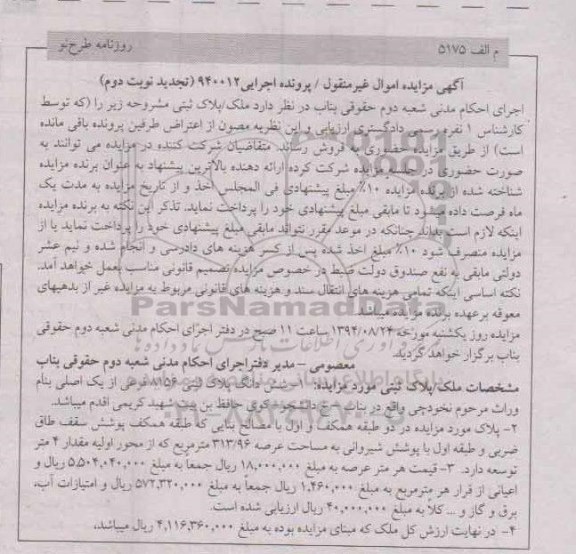 م الف ۵۱۷۵
روزنامه طرح نو
آگهی مزایده اموال غیرمنقول / پرونده اجرایی ۹۴۰۰۱۲ (تجدید نوبت دوم)
اجرای احکام مدنی شعبه دوم حقوقی بناب در نظر دارد ملک/پلاک ثبتی مشروحه زیر را (که توسط
کارشناس ۱ نفره رسمی دادگستری ارزیابی و این نظریه مصون از اعتراض طرفین پرونده باقی مانده
است) از طریق مزایده حضوری به فروش رساند. متقاضیان شرکت کننده در مزایده می توانند به
صورت حضوری در جلسه مزایده شرکت کرده ارائه دهنده بالاترین پیشنهاد به عنوان برنده مزایده
شناخته شده از برنده مزایده ۱۰٪ مبلغ پیشنهادی فی المجلس اخذ و از تاریخ مزایده به مدت یک
ماه فرصت داده میشود تا مابقی مبلغ پیشنهادی خود را پرداخت نماید. تذکر این نکته به برنده مزایده
اینکه لازم است بداند چنانکه در موعد مقرر نتواند مابقی مبلغ پیشنهادی خود را پرداخت نماید یا از
مزایده منصرف شود ۱۰٪ مبلغ اخذ شده پس از کسر هزینه های دادرسی و انجام شده و نیم عشر
دولتی مابقی به نفع صندوق دولت ضبط در خصوص مزایده تصمیم قانونی مناسب بعمل خواهد آمد.
نکته اساسی اینکه تمامی هزینه های انتقال سند و هزینه های قانونی مربوط به مزایده غیر از بدهیهای
معوقه برعهده برنده مزایده میباشد.
مزایده روز یکشنبه مورخه ۱۳۹۴/۰۸/۲۴ ساعت ۱۱ صبح در دفتر اجرای احکام مدنی شعبه دوم حقوقی
بناب برگزار خواهد گردید.
معصومی – مدیر دفتر اجرای احکام مدنی شعبه دوم حقوقی بناب
مشخصات ملک/پلاک ثبتی مورد مزایده: ۱- شش دانگ پلاک ثبتی فرعی از یک اصلی بنام
وراث مرحوم نخودچی واقع در بناب کوی حافظ بن بست شهید کریمی اقدم میباشد.
۲- پلاک مورد مزایده در دو طبقه همکف و اول با مصالح بنایی که طبقه همکف پوشش سقف طاق
ضربی و طبقه اول با پوشش شیروانی به مساحت عرصه ۳۱۳/۹۶ مترمربع که از محور اولیه مقدار ۴ متر
توسعه دارد. ۳- قیمت هر متر عرصه به مبلغ ۱۸,۰۰۰,۰۰۰ ریال جمعاً به مبلغ ۵,۵۰۴,۰۴۰,۰۰۰ ریال و
اعیانی از قرار هر مترمربع به مبلغ ۱,۴۶۰,۰۰۰ ریال جمعاً به مبلغ ۵۷۲,۳۲۰,۰۰۰ ریال و امتیازات آب،
برق و گاز و ... کلاً به مبلغ ۴۰,۰۰۰,۰۰۰ ریال ارزیابی شده است.
۴- در نهایت ارزش کل ملک که مبنای مزایده بوده به مبلغ ۴,۱۱۶,۳۶۰,۰۰۰ ریال میباشد.
ParsNamadData